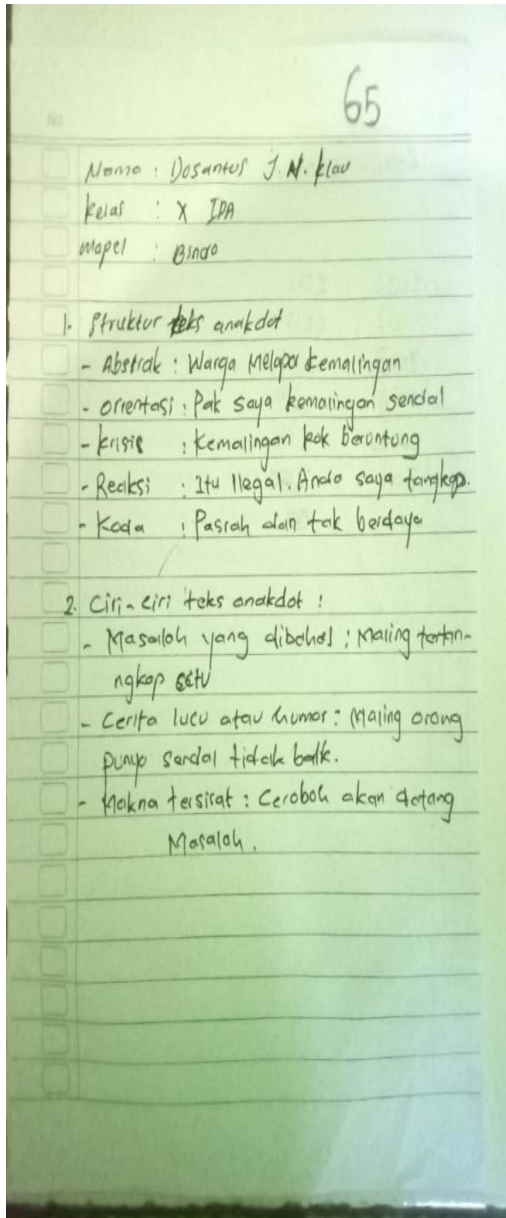 No
65
Nama : Dosantus J. N. Klau
Kelas : X IPA
Mapel : Bindo
1. Struktur teks anakdot
- Abstrak : Warga Melapor kemalingan
- orientasi : Pak saya kemalingan sendal
- krisis : Kemalingan kok beruntung
- Reaksi : Itu Ilegal. Anda saya tangkap.
- Koda : Pasrah dan tak berdaya
2. Ciri-ciri teks anakdot :
- Masalah yang dibahas : Maling tertan-
ngkap satu
- Cerita lucu atau humor : Maling orang
punya sandal tidak balk.
- Makna tersirat : Ceroboh akan datang
Masalah.